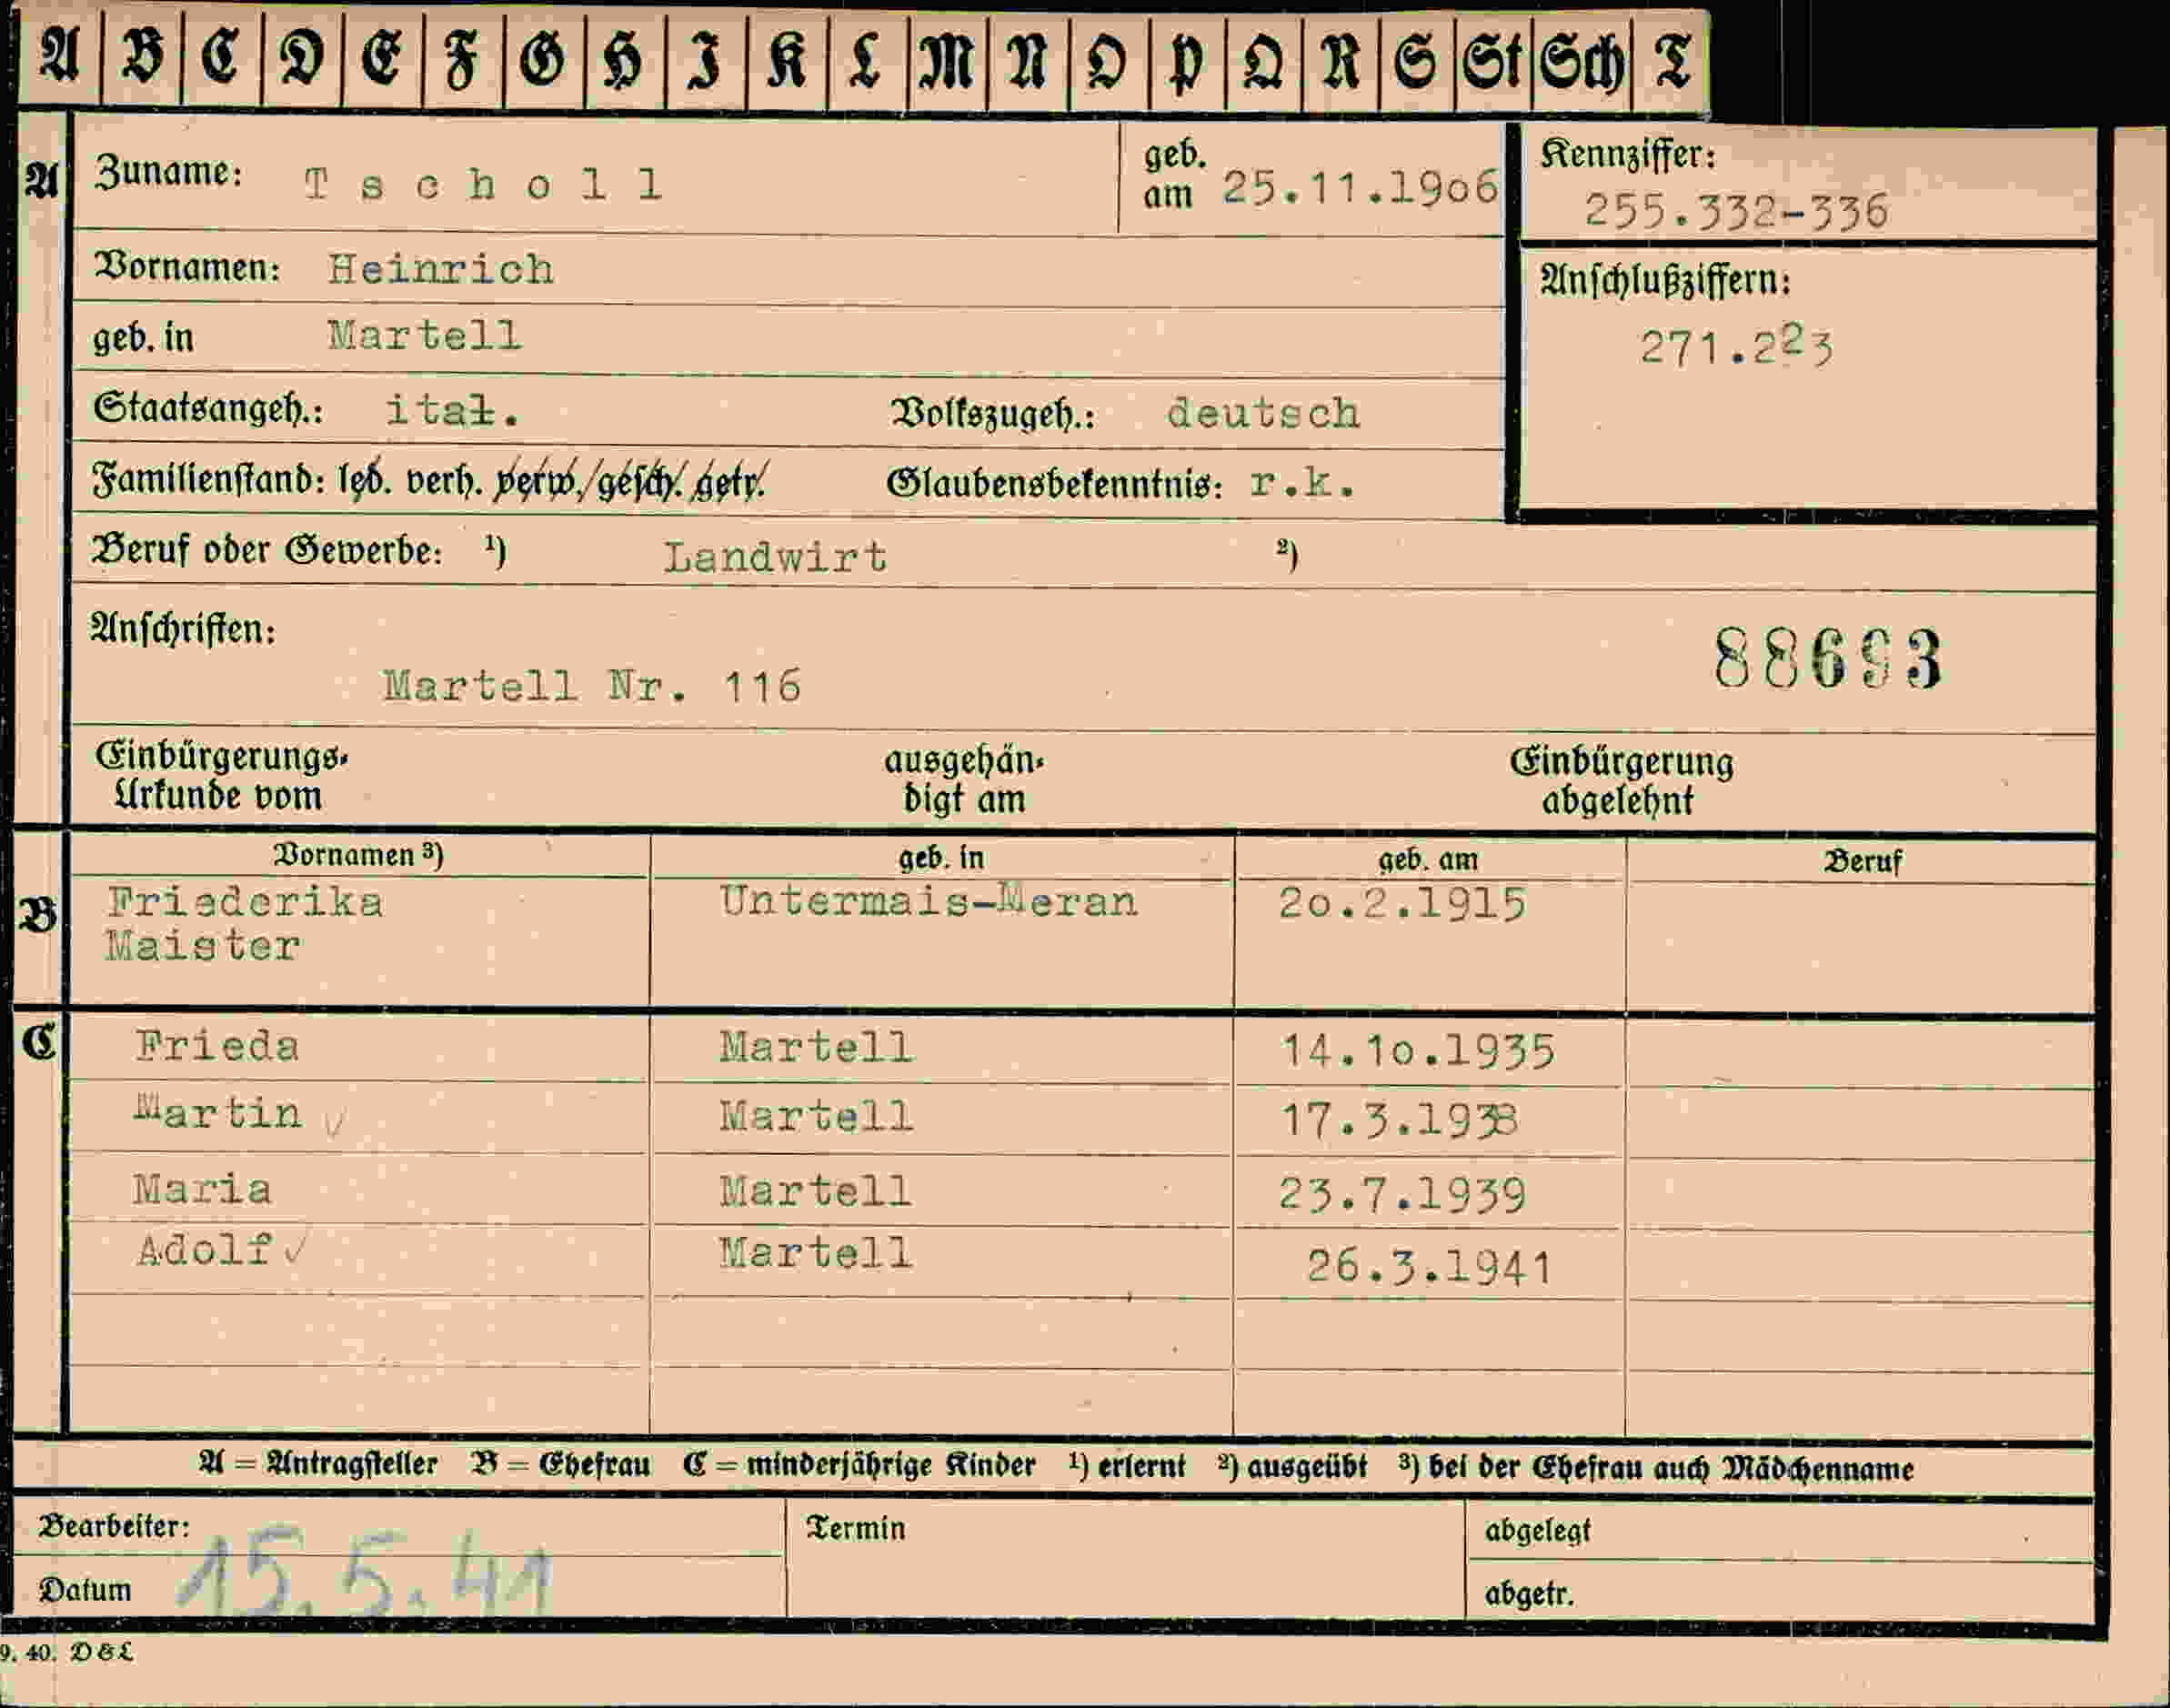 A B C D E F G H I K L M N O P Q R S St Sch T
A Zuname: Tscholl geb. am 25.11.19o6 Kennziffer:
255.332-336
Vornamen: Heinrich Anschlußziffern:
geb. in Martell 271.223
Staatsangeh.: ital. Volkszugeh.: deutsch
Familienstand: led. verh. verw. gesch. getr. Glaubensbekenntnis: r.k.
Beruf oder Gewerbe: ¹) Landwirt ²)
Anschriften: 88693
Martell Nr. 116
Einbürgerungs- ausgehän- Einbürgerung
Urkunde vom digt am abgelehnt
Vornamen ³) geb. in geb. am Beruf
B Friederika Untermais-Meran 2o.2.1915
Maister
C Frieda Martell 14.1o.1935
Martin Martell 17.3.1938
Maria Martell 23.7.1939
Adolf Martell 26.3.1941
A = Antragsteller B = Ehefrau C = minderjährige Kinder ¹) erlernt ²) ausgeübt ³) bei der Ehefrau auch Mädchenname
Bearbeiter: Termin abgelegt
Datum 15.5.41 abgetr.
9. 40. D & L